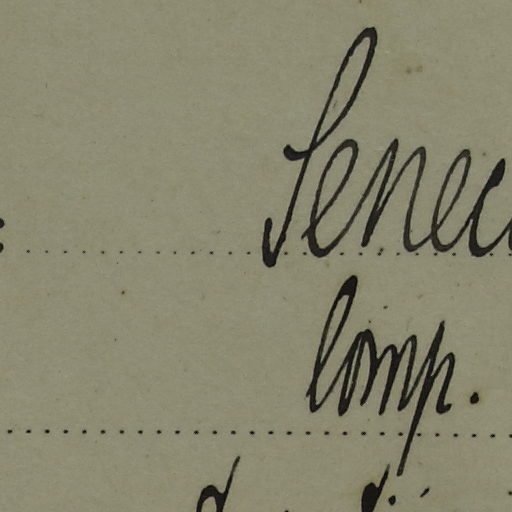 Senec
Comp.